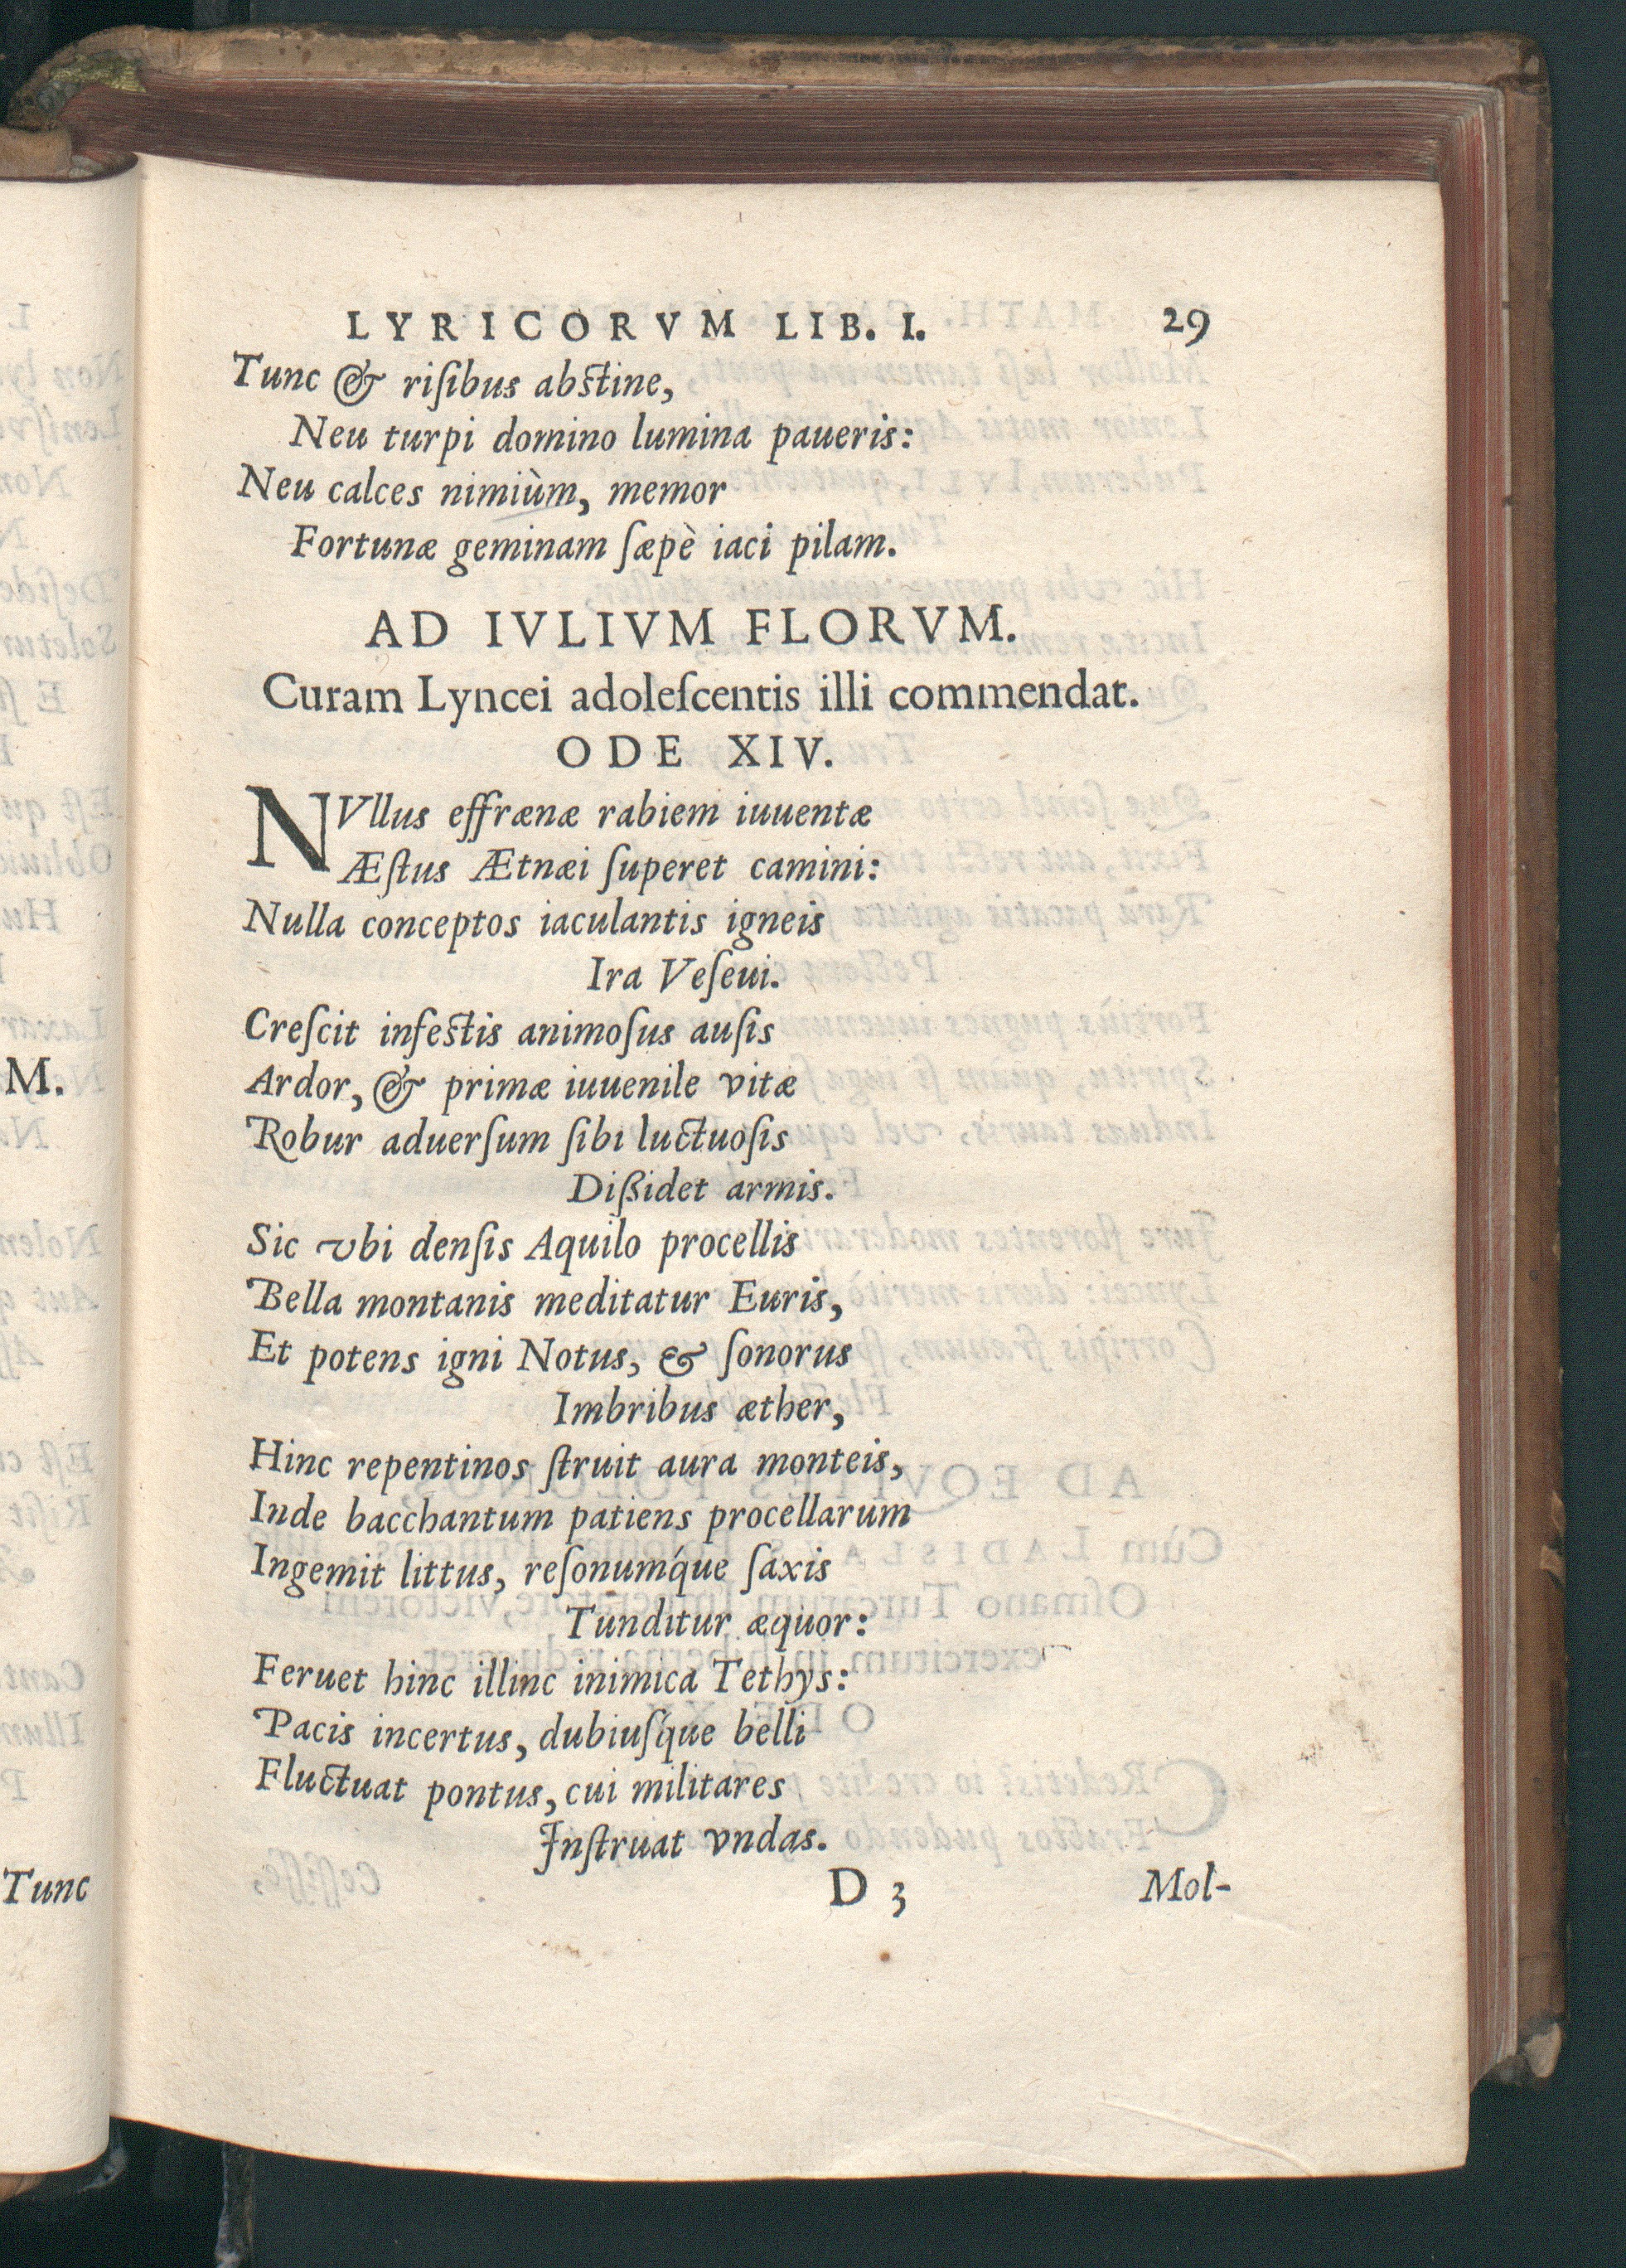 LYRICORVM LIB. I. 29
Tunc & riſibus abſtine,
Neu turpi domino lumina paueris:
Neu calces nimiùm, memor
Fortunæ geminam ſæpè iaci pilam.
AD IVLIVM FLORVM.
Curam Lyncei adoleſcentis illi commendat.
ODE XIV.
NVllus effrænæ rabiem iuuentæ
Æſtus Ætnæi ſuperet camini:
Nulla conceptos iaculantis igneis
Ira Veſeui.
Creſcit infeſtis animoſus auſis
Ardor, & primæ iuuenile vitæ
Robur aduerſum ſibi luctuoſis
Dißidet armis.
Sic vbi denſis Aquilo procellis
Bella montanis meditatur Euris,
Et potens igni Notus, & ſonorus
Imbribus æther,
Hinc repentinos ſtruit aura monteis,
Inde bacchantum patiens procellarum
Ingemit littus, reſonumq́ue ſaxis
Tunditur æquor:
Feruet hinc illinc inimica Tethys:
Pacis incertus, dubiuſq́ue belli
Fluctuat pontus, cui militares
Inſtruat vndas.
D 3 Mol-
M.
Tunc